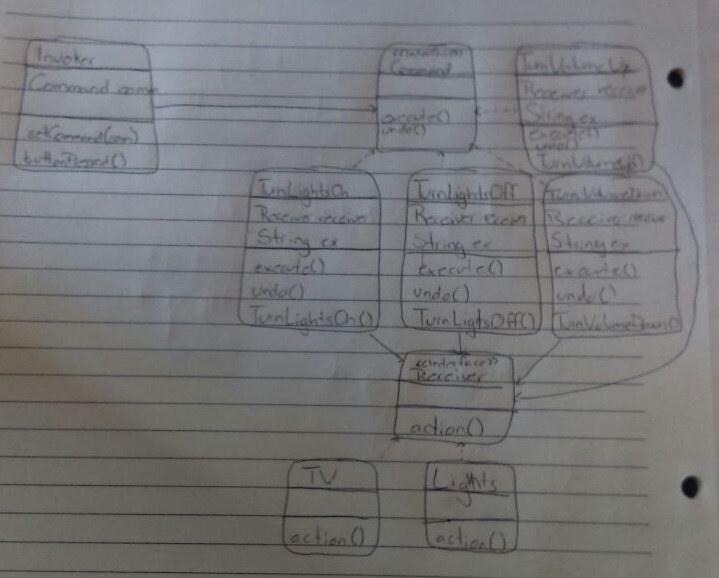 Invoker
Command
setCommand(com)
buttonPressed()
Command
execute()
undo()
TurnVolumeUp
Receiver
String ex
execute()
undo()
TurnVolumeUp()
TurnLightsOn
Receiver receiver
String ex
execute()
undo()
TurnLightsOn()
TurnLightsOff
Receiver
String ex
execute()
undo()
TurnLigtsOff()
TurnVolumeDown
Receiver
String ex
execute()
undo()
TurnVolumeDown()
<<interface>>
Receiver
action()
TV
action()
Lights
action()